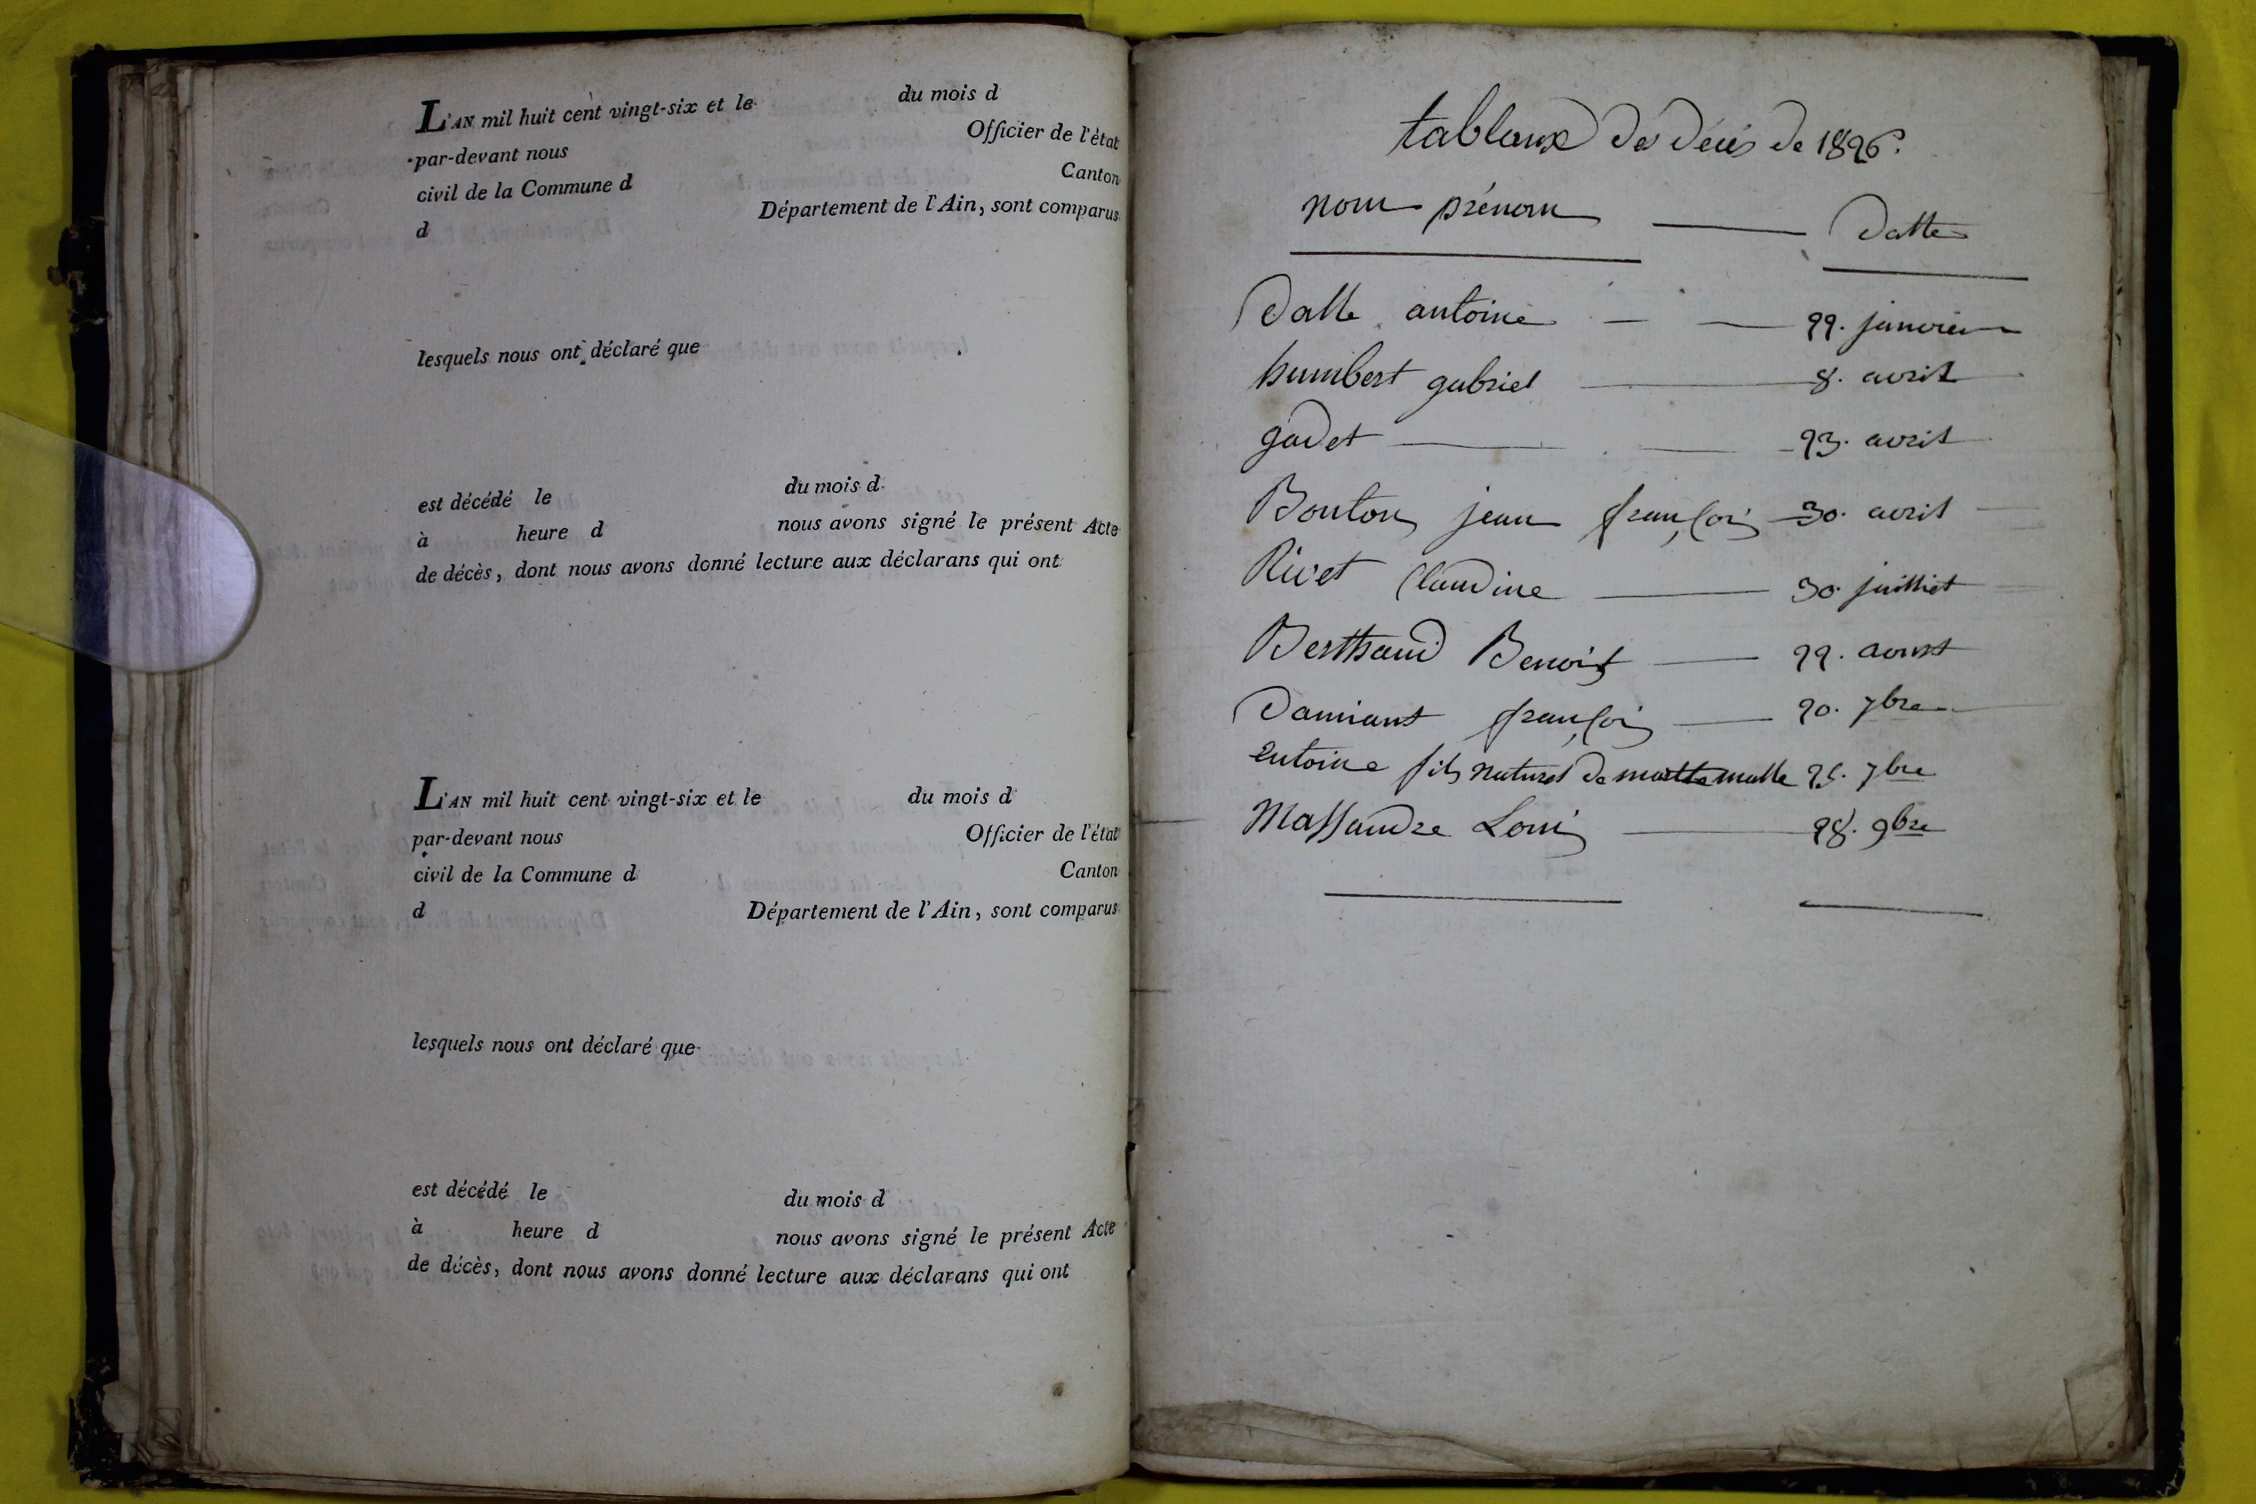 L'AN mil huit cent vingt-six et le du mois d
par-devant nous Officier de l'état
civil de la Commune d Canton
d Département de l'Ain, sont comparus
lesquels nous ont déclaré que
est décédé le du mois d
à heure d nous avons signé le présent Acte
de décès, dont nous avons donné lecture aux déclarans qui ont
L'AN mil huit cent vingt-six et le du mois d
par-devant nous Officier de l'état
civil de la Commune d Canton
d Département de l'Ain, sont comparus
lesquels nous ont déclaré que
est décédé le du mois d
à heure d nous avons signé le présent Acte
de décès, dont nous avons donné lecture aux déclarans qui ont
tableaux de décès de 1826.
nom prénom — Datte
Dalle antoine — — 22. janvier
humbert gabriel — 8. avril
gadet — 23. avril
Bouton jean françois 30. avril
Rivet Claudine — 30. juilliet
Berthaud Benoist — 22. aoust
Damians françois — 20. 7bre
antoine fils naturel de 25. 7bre
Massandre Loui — 28. 9bre